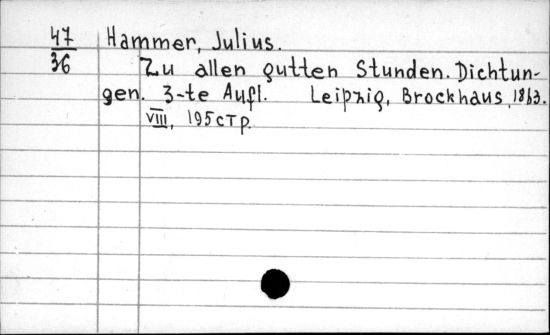 47 Hammer, Julius.
36 Zu allen gutten Stunden. Dichtun-
gen. 3-te Aufl. Leipzig, Brockhaus, 1863.
VIII, 195 стр.